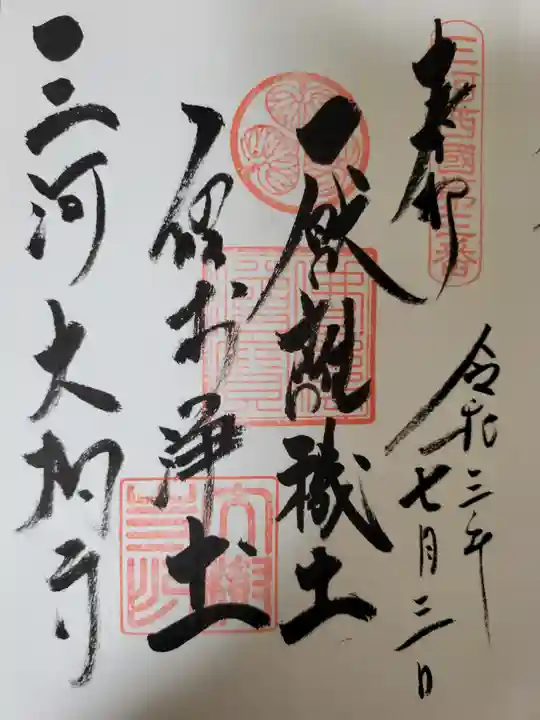 三河西国第三番
奉拝
令和三年
七月三日
厭離穢土
欣求浄土
三河
大樹寺
大樹